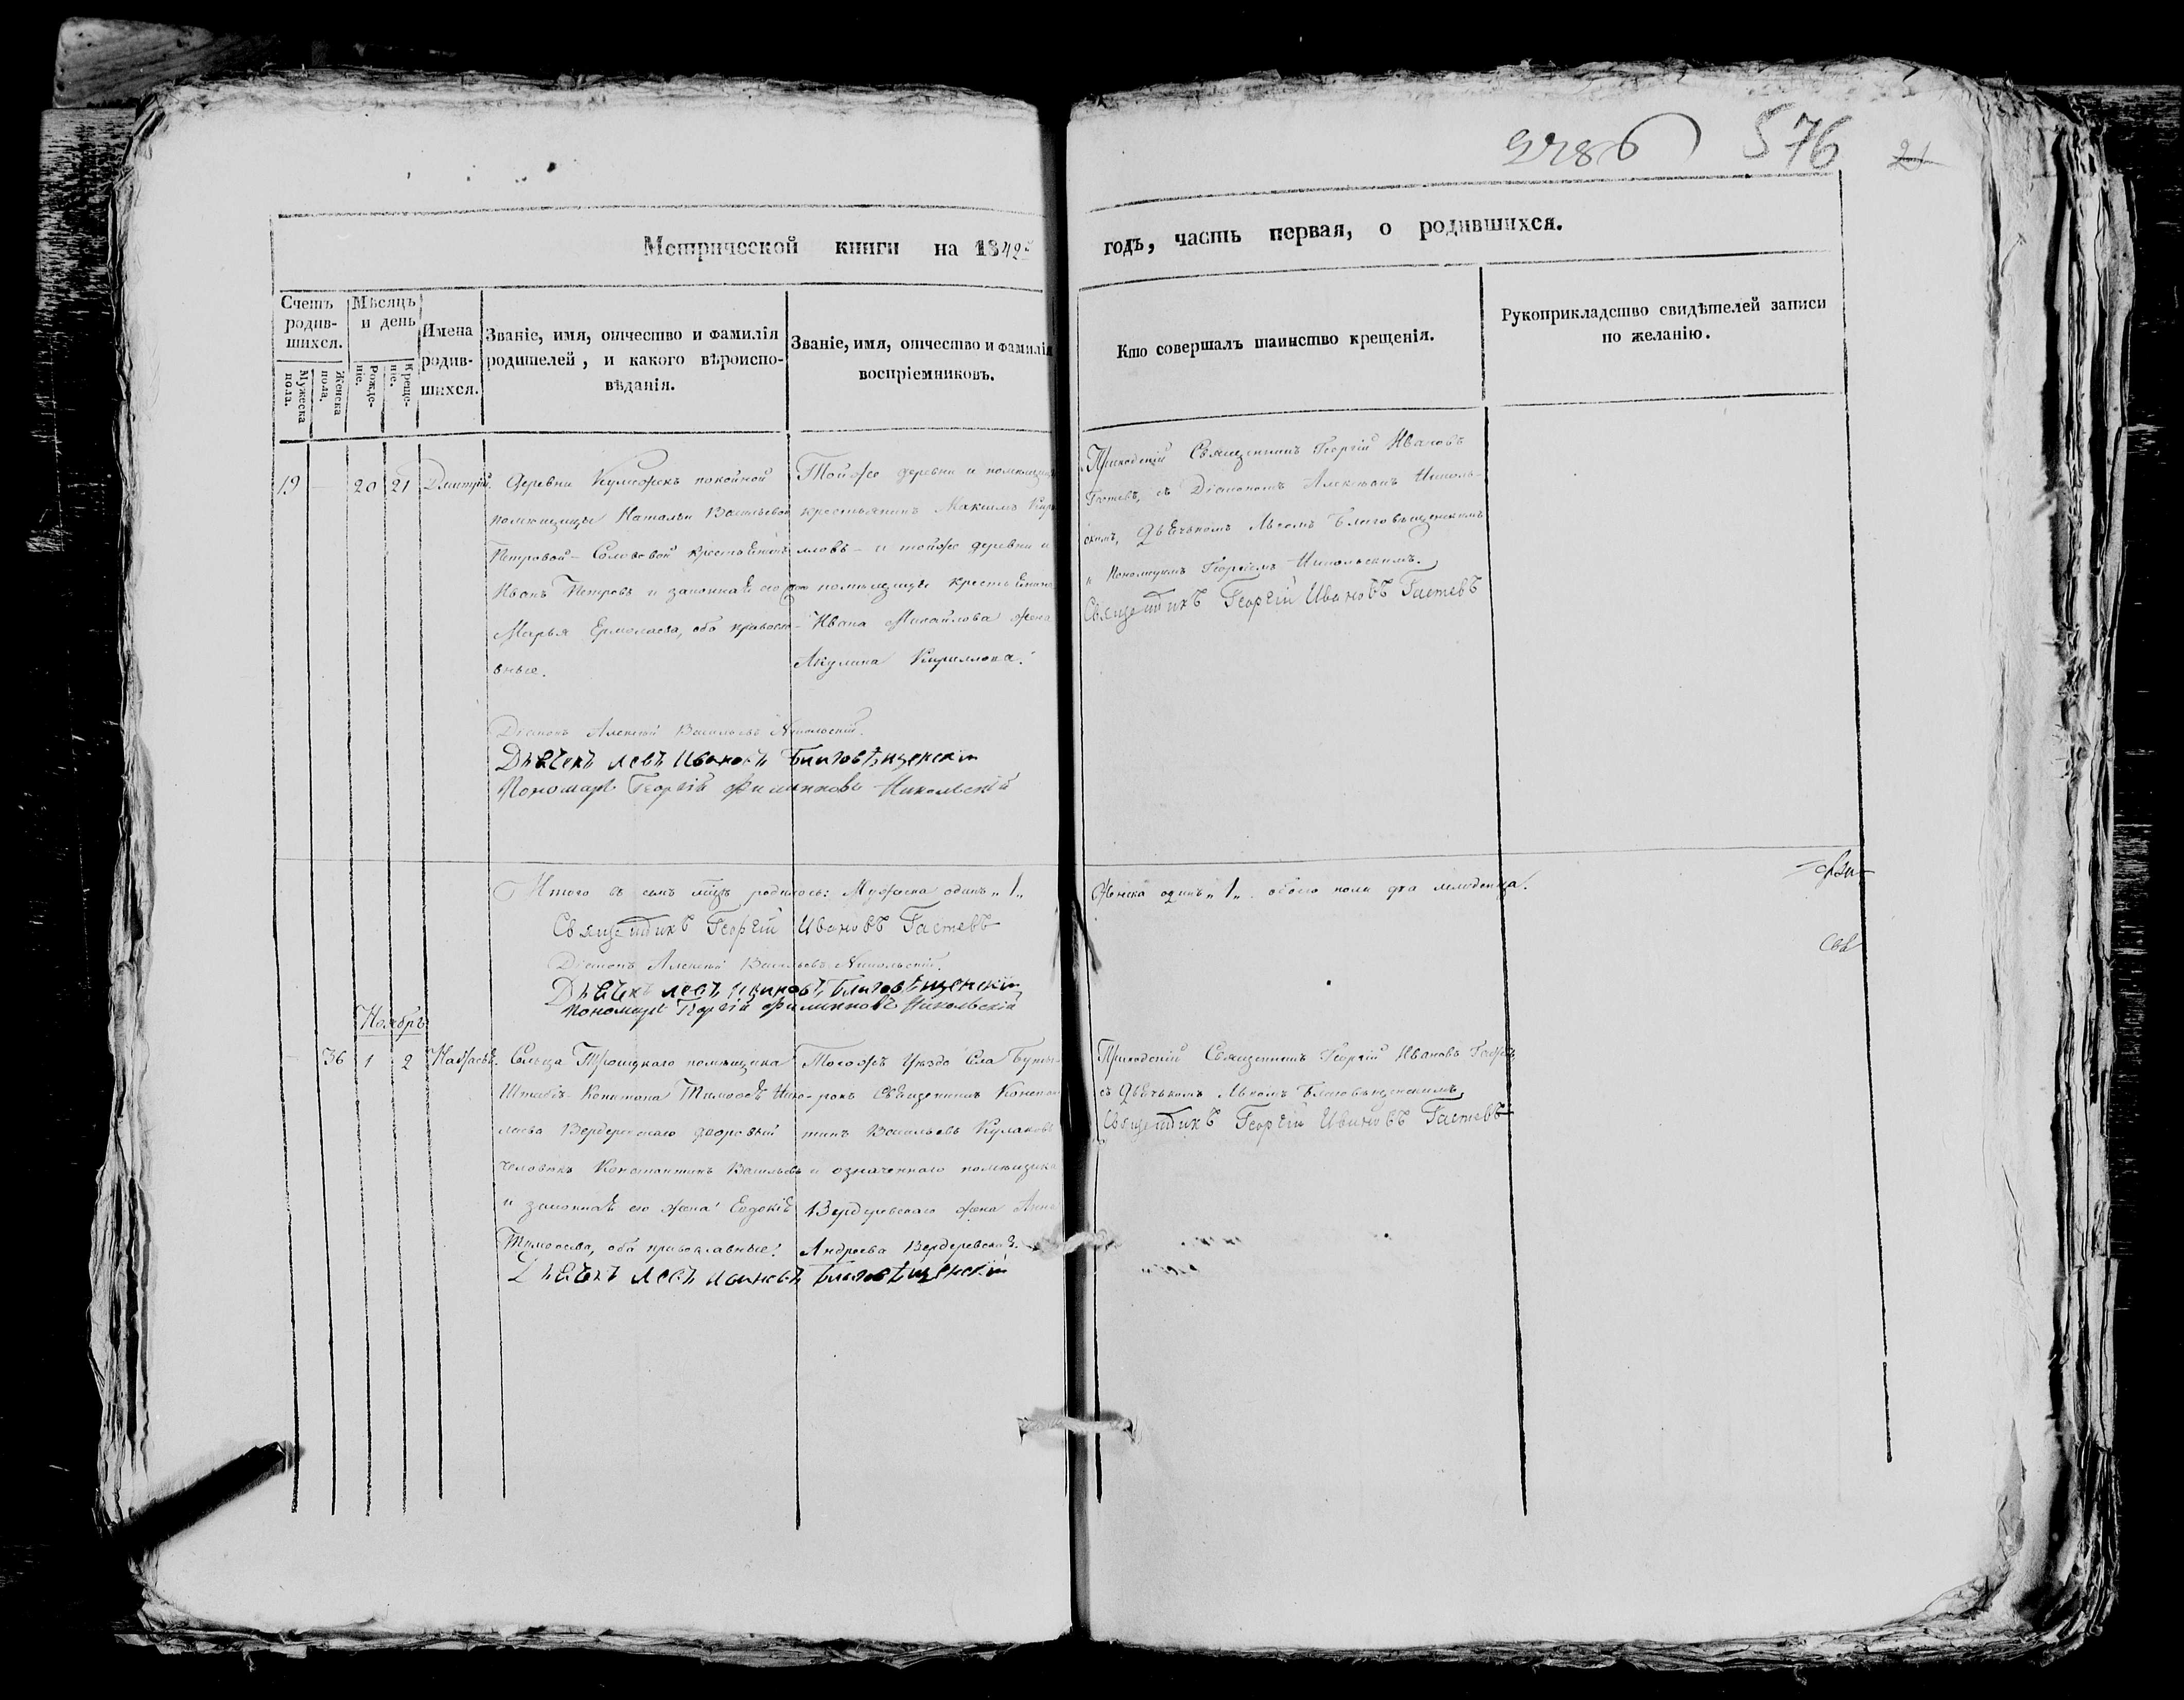 5286 576 21
Метрической книги на 1842й годъ, часть первая, о родившихся.
Счетъ родив-шихся.
Мужеска пола.
Женска пола.
Мѣсяцъ и день
Рожде-ніе.
Креще-ніе.
Имена родив-шихся.
Званіе, имя, отчество и фамилія родителей, и какого вѣроиспо-вѣданія.
Званіе, имя, отчество и фамилія воспріемниковъ.
Кто совершалъ таинство крещенія.
Рукоприкладство свидѣтелей записи по желанію.
19 — 20 21 Дмитрій.
Деревни покойной
помѣщицы Натальи Васильевой
Петровой-Соловой крестьянинъ
Иванъ Петровъ и законная его жена
Марья Ермолаева, оба правосла-
вные.
Тойже деревни и помѣщицы
крестьянинъ Максимъ Кири-
лловъ - и тойже деревни и
помѣщицы крестьянина
Ивана Михайлова жена
Акулина Кириллова.
Приходскій Священникъ Георгій Ивановъ
Гастевъ, съ Діакономъ Алексѣемъ Николь-
скимъ, Дьячкомъ Львомъ Благовѣщенскимъ
и Пономаремъ Георгіемъ Никольскимъ.
Священникъ Георгій Ивановъ Гастевъ
Діаконъ Алексѣй Васильевъ Никольскій.
Дьячекъ Левъ Ивановъ Благовѣщенскій
Пономарь Георгій Филипповъ Никольскій
Итого въ семъ мцѣ родилось: Мужеска одинъ „1„ Женска одинъ „1„ обоего пола два младенца.
Священникъ Георгій Ивановъ Гастевъ
Діаконъ Алексѣй Васильевъ Никольскій.
Дьячекъ Левъ Ивановъ Благовѣщенскій
Пономарь Георгій Филипповъ Никольскій
Свя
Ноябрь
36 1 2
Сельца Троицкаго помѣщика
Штабсъ-Капитана Тимофея Нико-
лаева Вердеревскаго дворовый
человѣкъ Константинъ Васильевъ
и законная его жена Евдокія
Тимофеева, оба православные.
Тогожъ Уѣзда Села
Священникъ Констан-
тинъ Васильевъ Кулаковъ
и означеннаго помѣщика
Вердеревскаго жена Анна
Андреева Вердеревская.
Приходскій Священникъ Георгій Ивановъ Гастевъ
съ Дьячкомъ Львомъ Благовѣщенскимъ
Священникъ Георгій Ивановъ Гастевъ
Дьячекъ Левъ Ивановъ Благовѣщенскій